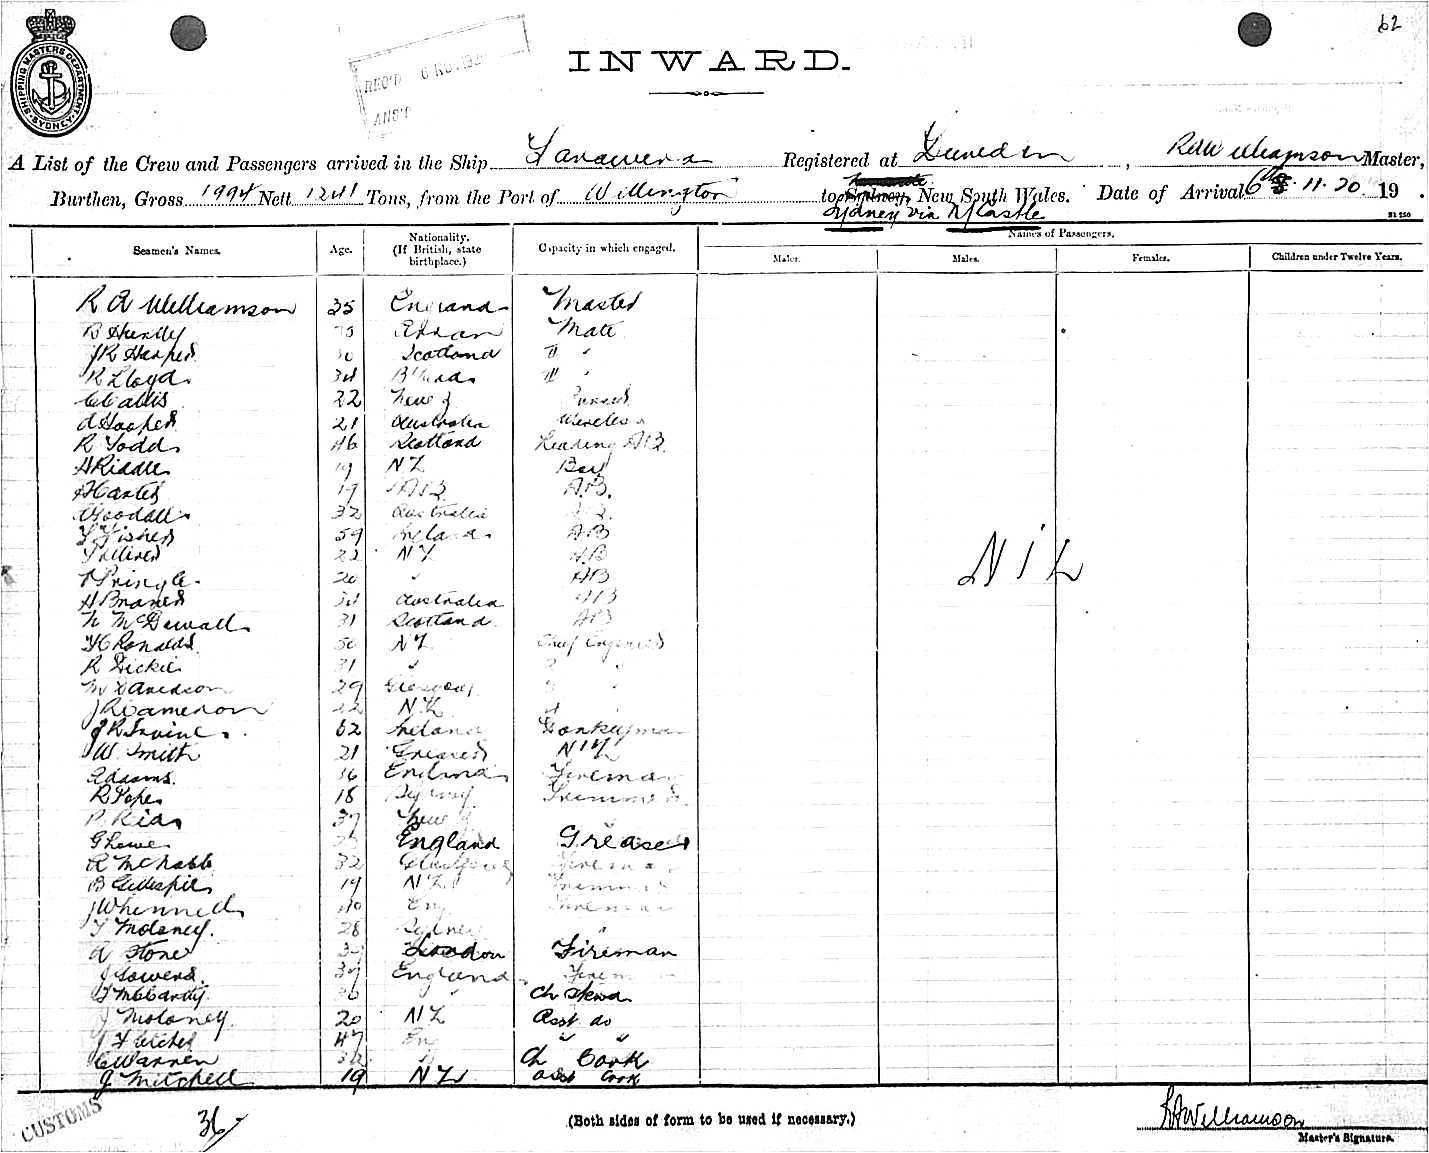 62
SHIPPING MASTERS DEPARTMENT SYDNEY
REC'D 6
ANS'D
INWARD.
A List of the Crew and Passengers arrived in the Ship Tarawera Registered at Dunedin, R A Williamson Master,
Burthen, Gross 1994 Nett 1241 Tons, from the Port of Wellington to Sydney, New South Wales. Date of Arrival 6 11.20 19 .
Sydney via N/Castle
Seamen's Names. Age. Nationality. (If British, state birthplace.) Capacity in which engaged. Names of Passengers.
Males. Males. Females. Children under Twelve Years.
R A Williamson 35 England Master
B Huntly Mate
J R Harper 30 Scotland II "
R Lloyd 34 III "
22 New Z Purser
A Hooper 21 Australia Wireless
R Todd 46 Scotland Leading AB
H Riddle 19 NZ Boy
19 A.B.
Woodall 32 Australia
Fisher 59 Ireland AB
22 NZ AB
Pringle 20 " AB
H 34 Australia AB
N McDowall 31 Scotland AB
H C Ronalds 50 NZ Chief Engineer
R Dickie 31 " 2 "
M Davidson 29 Glasgow 3 "
J R Cameron 22 NZ 4 "
J R Irvine 62 Ireland Donkeyman
W. Smith 21 Greaser NZ
Adams 36 England Fireman
R Pope 18 Sydney Trimmer
P. Reid 37 New Z "
G Lowe England Greaser
R McNabb 32 Fireman
B Gillespie 19 NZ Trimmer
J Whennell 40 Eng Fireman
T Moloney. 28 Sydney "
A Stone London Fireman
J Sowers. 37 England Fireman
T McCarthy. 36 " Ch Stewd
J Moloney. 20 NZ Asst do
J Fletcher 47 Eng " "
C Warren " Ch Cook
J Mitchell 19 NZ Asst Cook
NIL
CUSTOMS
36
(Both sides of form to be used if necessary.)
R A Williamson
Master's Signature.